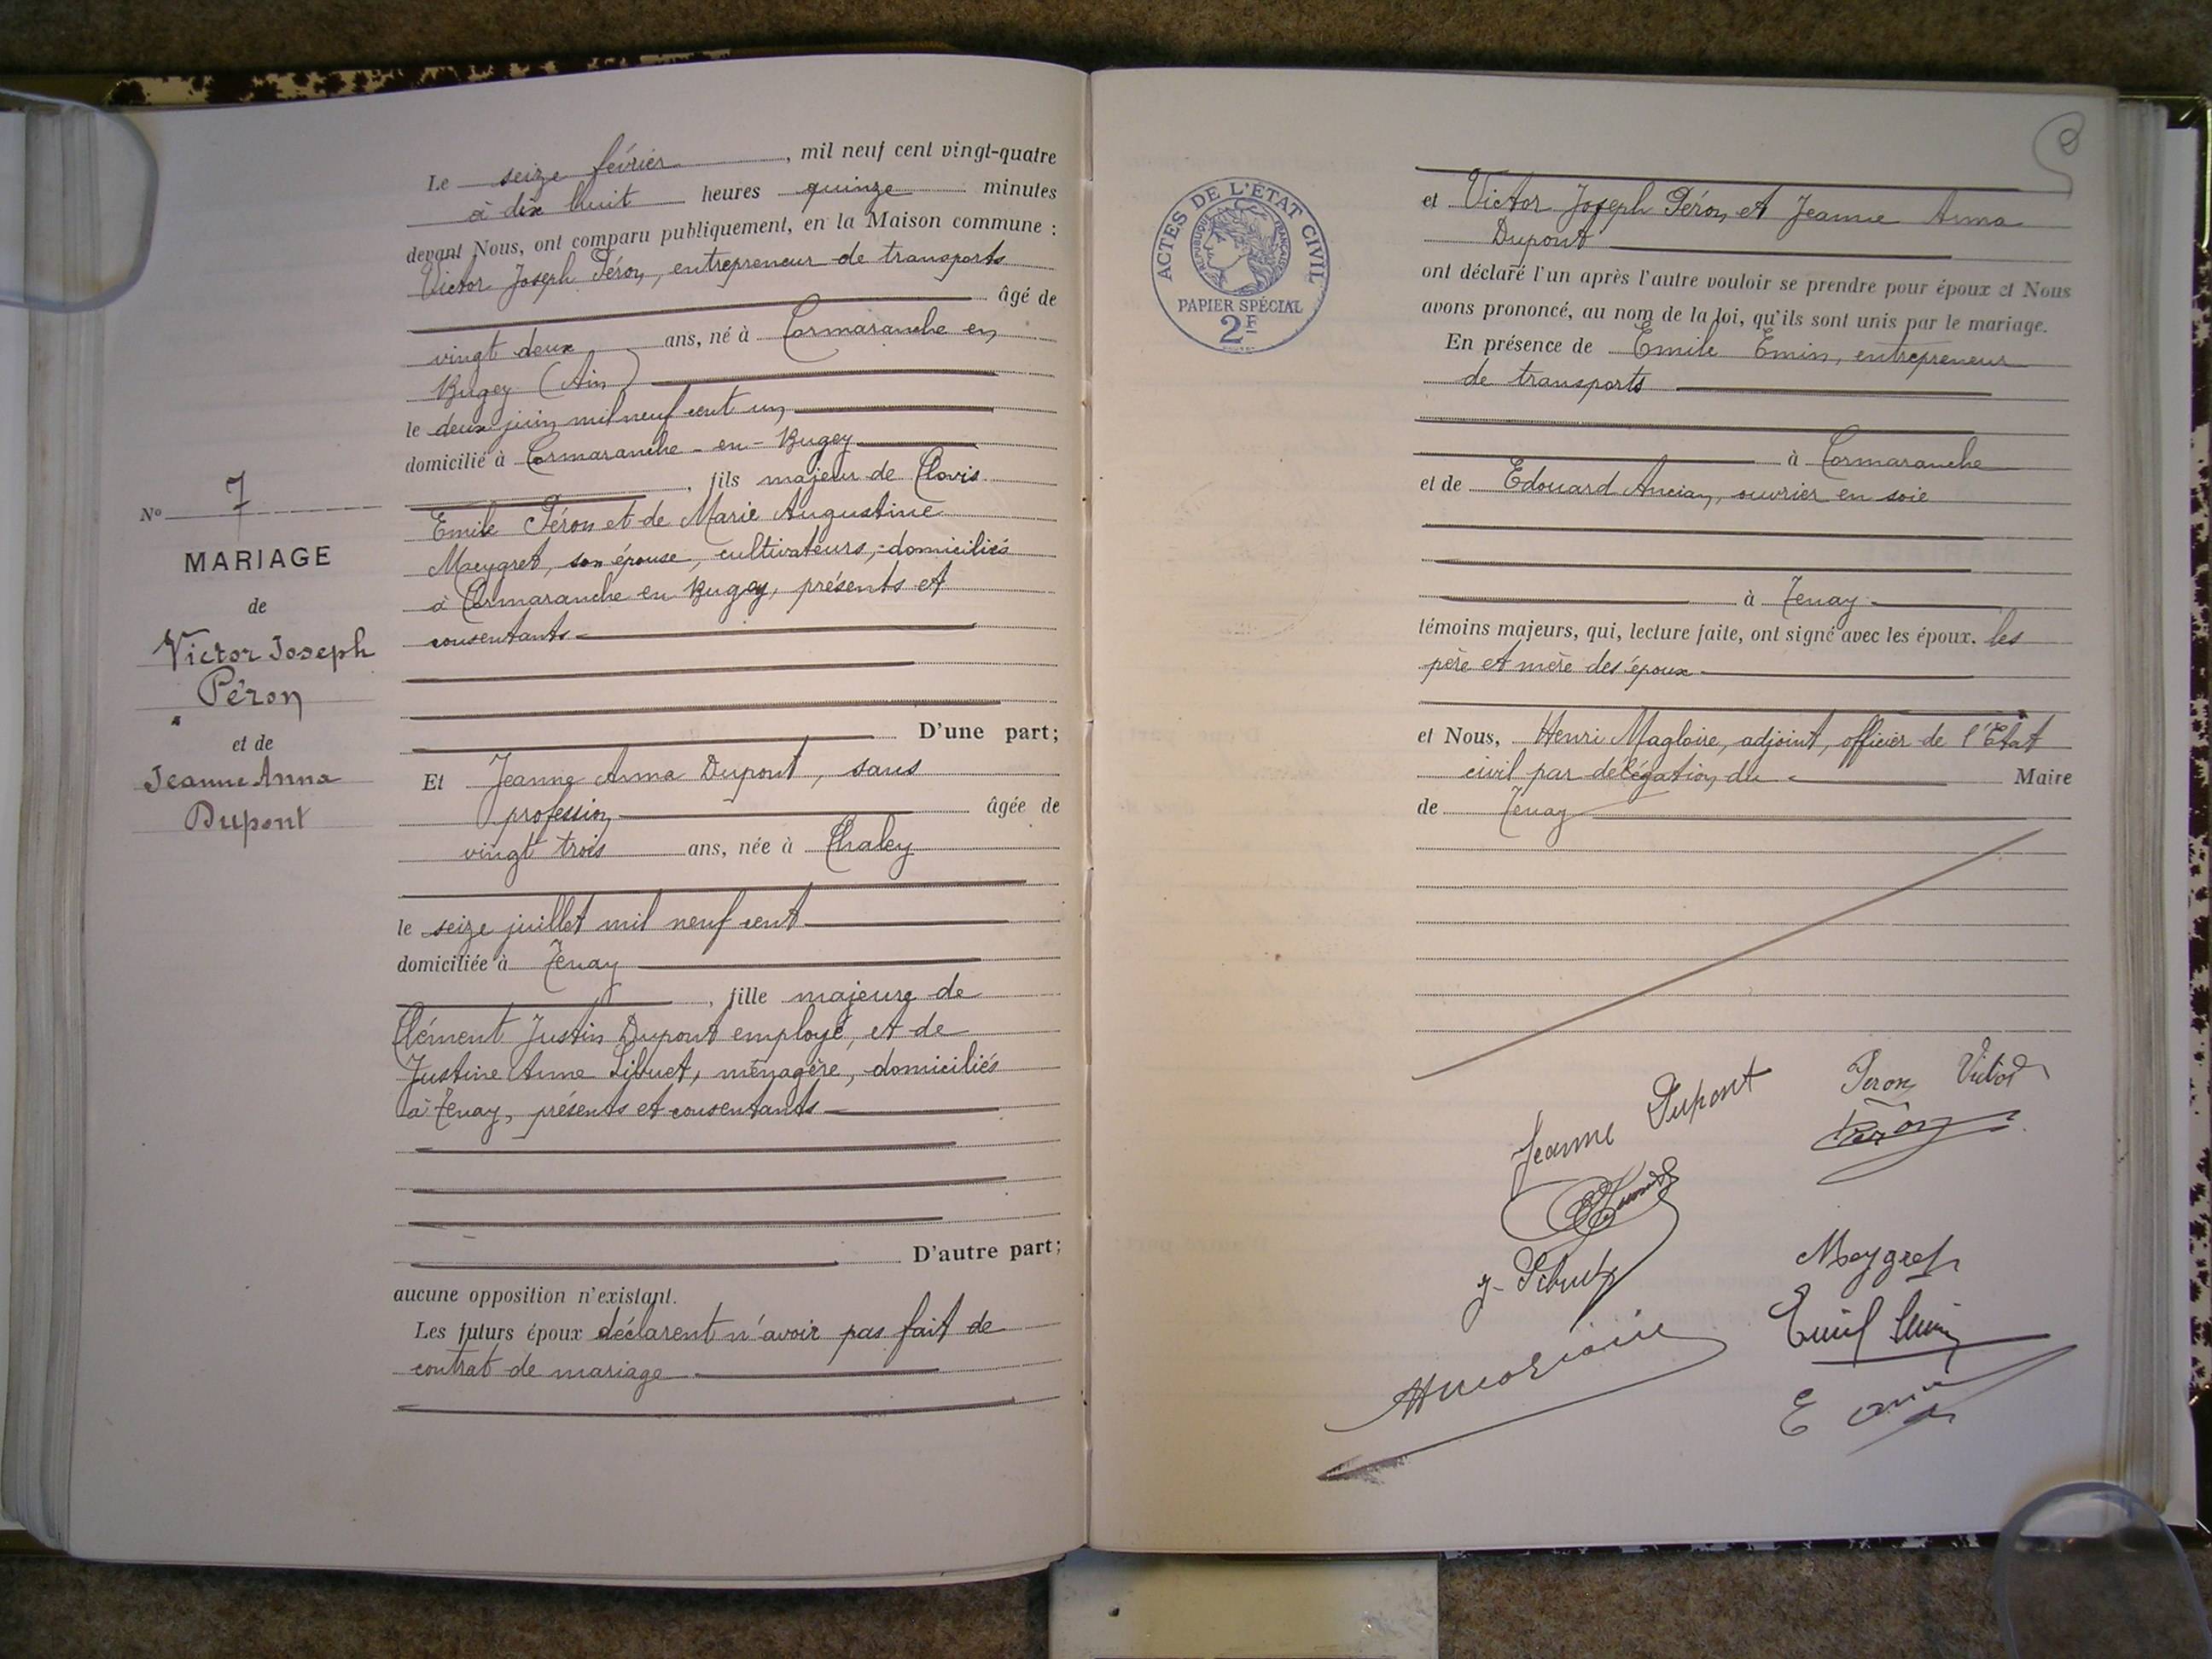 Le seize février, mil neuf cent vingt-quatre
à dix huit heures quinze minutes
devant Nous, ont comparu publiquement, en la Maison commune :
Victor Joseph Péron, entrepreneur de transports
âgé de
vingt deux ans, né à Cormaranche en
Bugey (Ain)
le deux juin mil neuf cent un
domicilié à Cormaranche-en-Bugey
, fils majeur de Clovis
Emile Péron et de Marie Augustine
Meygret, son épouse, cultivateurs, domiciliés
à Cormaranche en Bugey, présents et
consentants
D'une part;
Et Jeanne Anna Dupont, sans
profession âgée de
vingt trois ans, née à Chaley
le seize juillet mil neuf cent
domiciliée à Tenay
, fille majeure de
Clément Justin Dupont employé, et de
Justine Anne Sibuet, ménagère, domiciliés
à Tenay, présents et consentants
D'autre part;
aucune opposition n'existant.
Les futurs époux déclarent n'avoir pas fait de
contrat de mariage
N° 7
MARIAGE
de
Victor Joseph
Péron
et de
Jeanne Anna
Dupont
ACTES DE L'ÉTAT CIVIL
RÉPUBLIQUE FRANÇAISE
PAPIER SPÉCIAL
2F
et Victor Joseph Péron et Jeanne Anna
Dupont
ont déclaré l'un après l'autre vouloir se prendre pour époux et Nous
avons prononcé, au nom de la loi, qu'ils sont unis par le mariage.
En présence de Emile Emin, entrepreneur
de transports
à Cormaranche
et de Edouard Ancian, ouvrier en soie
à Tenay
témoins majeurs, qui, lecture faite, ont signé avec les époux. les
père et mère des époux
et Nous, Henri Magloire, adjoint, officier de l'Etat
civil par délégation du Maire
de Tenay
Jeanne Dupont
Peron Victor
Péron
J. Sibuet
Meygret
Emile Emin